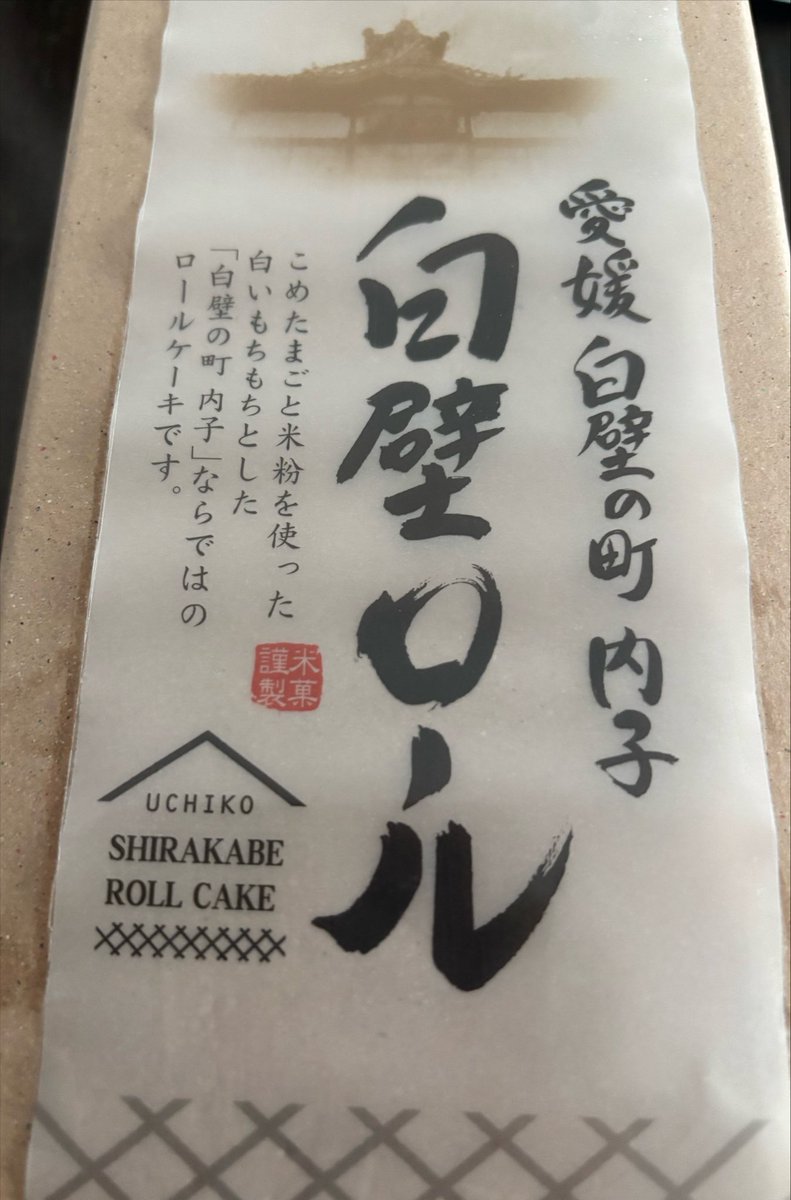 愛媛 白壁の町 内子
白壁ロール
こめたまごと米粉を使った
白いもちもちとした
「白壁の町 内子」ならではの
ロールケーキです。
米菓
謹製
UCHIKO
SHIRAKABE
ROLL CAKE